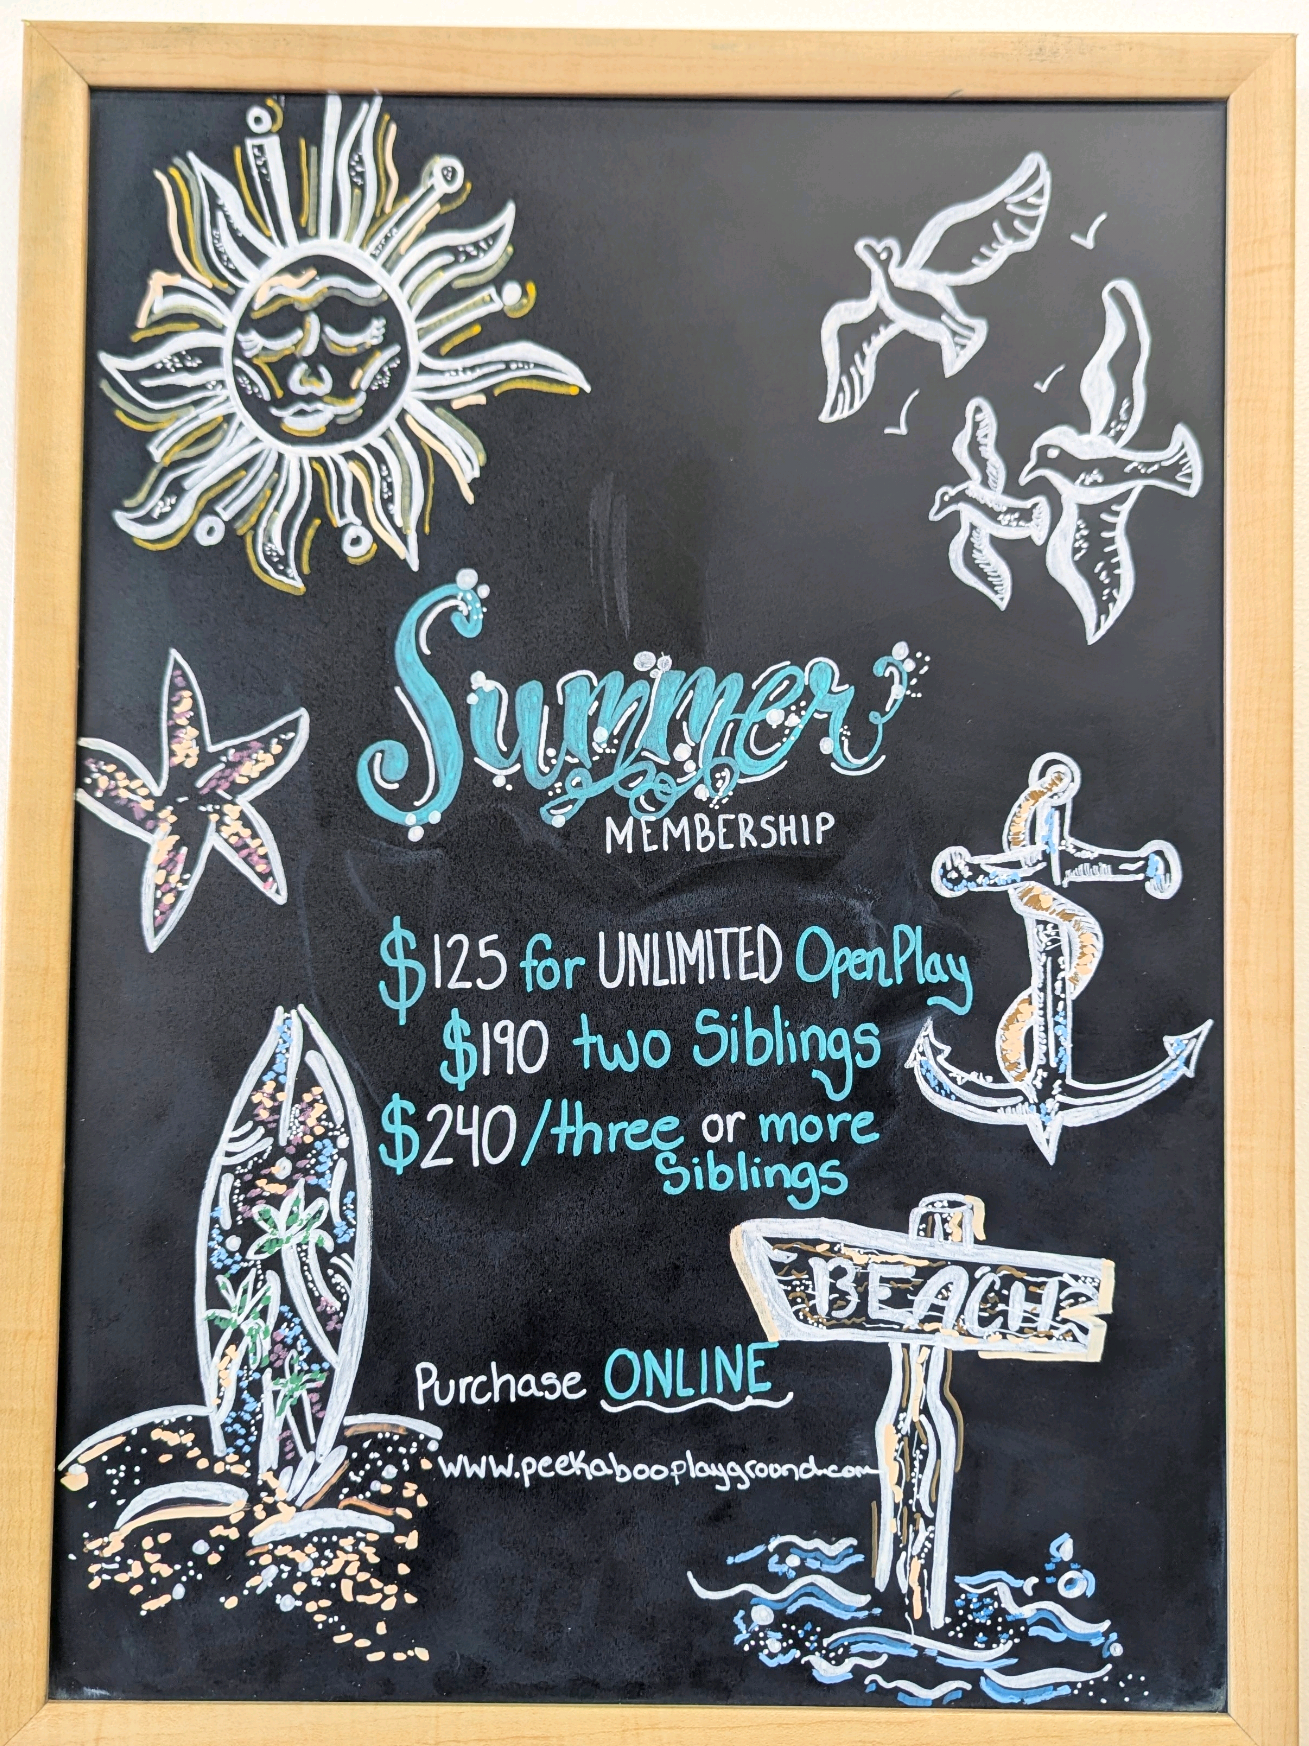 Summer
MEMBERSHIP
$125 for UNLIMITED Open Play
$190 two Siblings
$240/three or more
Siblings
BEACH
Purchase ONLINE
www.peekabooplayground.com